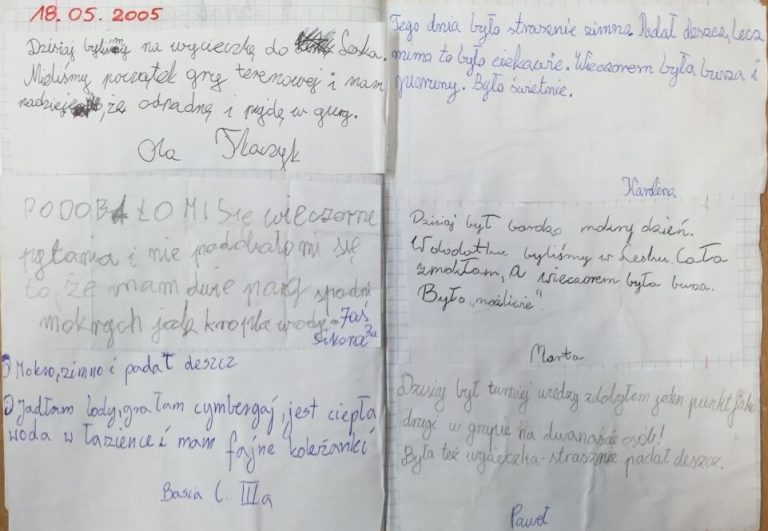 18.05.2005
Dzisiaj byliśmy na wycieczkę do Leska.
Mieliśmy początek gry terenowej i mam
nadzieję, że odpadnę i pójdę w góry.
Ola Tkaczyk
PODOBAŁO MI Się wieczorne
pytania i nie podobało mi się
to, że mam dwie pary spodni
mokrych jak kropla wody.
Jaś
Sikora 3a
1) Mokro, zimno i padał deszcz
2) Jadłam lody, grałam cymbergaj, jest ciepła
woda w łazience i mam fajne koleżanki
Basia C. IIIa
Tego dnia było strasznie zimno. Padał deszcz, Lecz
mimo to było ciekawie. Wieczorem była burza i
pioruny. Było świetnie.
Karolina
Dzisiaj był bardzo mokry dzień.
W dodatku byliśmy w Lesku. Cała
zmokłam, a wieczorem była burza.
Było „możliwie".
Marta
Dzisiaj był turniej wiedzy zdobyłem jeden punkt jako
drugi w grupie na dwanaście osób!
Była też wycieczka - strasznie padał deszcz.
Paweł